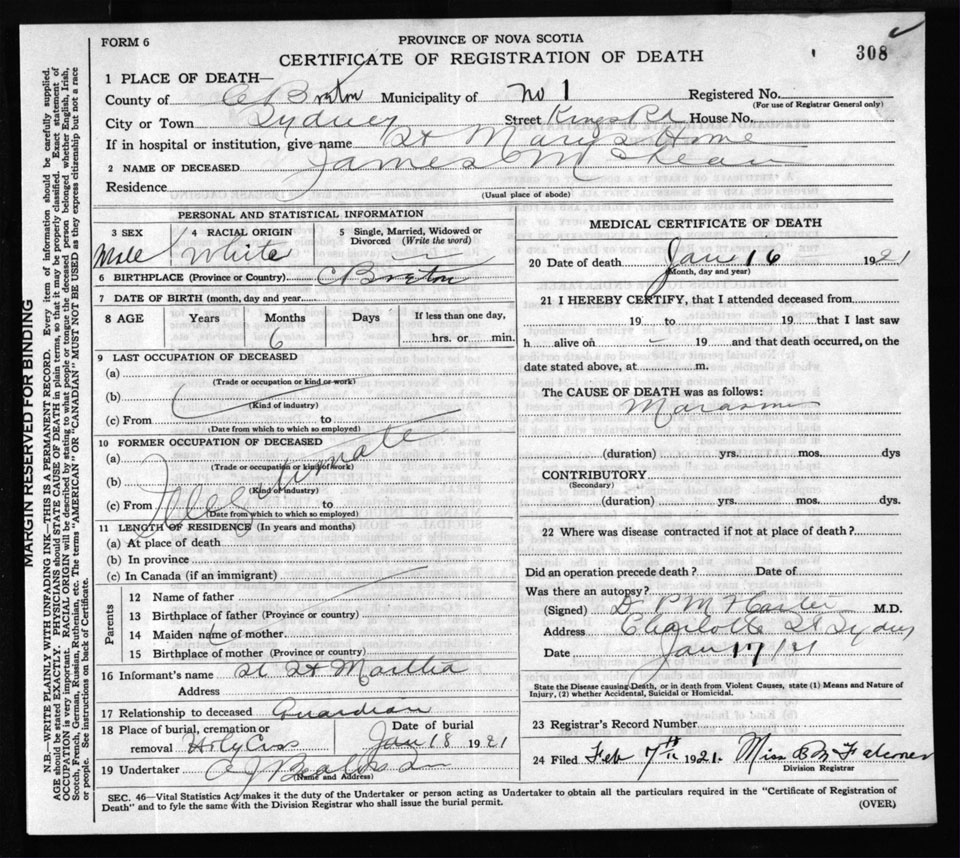 FORM 6
PROVINCE OF NOVA SCOTIA
CERTIFICATE OF REGISTRATION OF DEATH
308
1 PLACE OF DEATH—
County of C Breton Municipality of No 1 Registered No.
(For use of Registrar General only)
City or Town Sydney Street Kings Rd House No.
If in hospital or institution, give name St Mary's Home
2 NAME OF DECEASED James Mc
Residence
(Usual place of abode)
PERSONAL AND STATISTICAL INFORMATION
3 SEX 4 RACIAL ORIGIN 5 Single, Married, Widowed or Divorced (Write the word)
Male White
6 BIRTHPLACE (Province or Country) C Breton
7 DATE OF BIRTH (month, day and year)
8 AGE Years Months Days If less than one day,
6 hrs. or min.
9 LAST OCCUPATION OF DECEASED
(a)
(Trade or occupation or kind of work)
(b)
(Kind of industry)
(c) From to
(Date from which to which so employed)
10 FORMER OCCUPATION OF DECEASED
(a)
(Trade or occupation or kind of work)
(b) Illegitimate
(Kind of industry)
(c) From to
(Date from which to which so employed)
11 LENGTH OF RESIDENCE (In years and months)
(a) At place of death
(b) In province
(c) In Canada (if an immigrant)
Parents
12 Name of father
13 Birthplace of father (Province or country)
14 Maiden name of mother
15 Birthplace of mother (Province or country)
16 Informant's name St Martha
Address
17 Relationship to deceased Guardian
18 Place of burial, cremation or Date of burial
removal Holy Cross Jan 18 1921
19 Undertaker A J
(Name and Address)
MEDICAL CERTIFICATE OF DEATH
20 Date of death Jan 16 1921
(Month, day and year)
21 I HEREBY CERTIFY, that I attended deceased from
19 to 19 that I last saw
h alive on 19 and that death occurred, on the
date stated above, at m.
The CAUSE OF DEATH was as follows:
Marasmus
(duration) yrs. mos. dys
CONTRIBUTORY
(Secondary)
(duration) yrs. mos. dys.
22 Where was disease contracted if not at place of death?
Did an operation precede death? Date of
Was there an autopsy?
(Signed) M.D.
Address Charlotte St Sydney
Date Jan 17/21
State the Disease causing Death, or in death from Violent Causes, state (1) Means and Nature of
Injury, (2) whether Accidental, Suicidal or Homicidal.
23 Registrar's Record Number
24 Filed Feb 7th 1921. Miss B M Falconer
Division Registrar
SEC. 46—Vital Statistics Act makes it the duty of the Undertaker or person acting as Undertaker to obtain all the particulars required in the "Certificate of Registration of
Death" and to fyle the same with the Division Registrar who shall issue the burial permit.
(OVER)
MARGIN RESERVED FOR BINDING
N.B.—WRITE PLAINLY WITH UNFADING INK—THIS IS A PERMANENT RECORD. Every item of information should be carefully supplied.
AGE should be stated EXACTLY. PHYSICIANS should STATE CAUSE OF DEATH in plain terms, so that it may be properly classified. Exact statement of
OCCUPATION is very important. RACIAL ORIGIN will be described by stating to what people or tongue the deceased person belonged whether English, Irish,
Scotch, French, German, Russian, Ruthenian, etc. The terms "AMERICAN" OR "CANADIAN" MUST NOT BE USED as they express citizenship but not a race
or people. See instructions on back of Certificate.